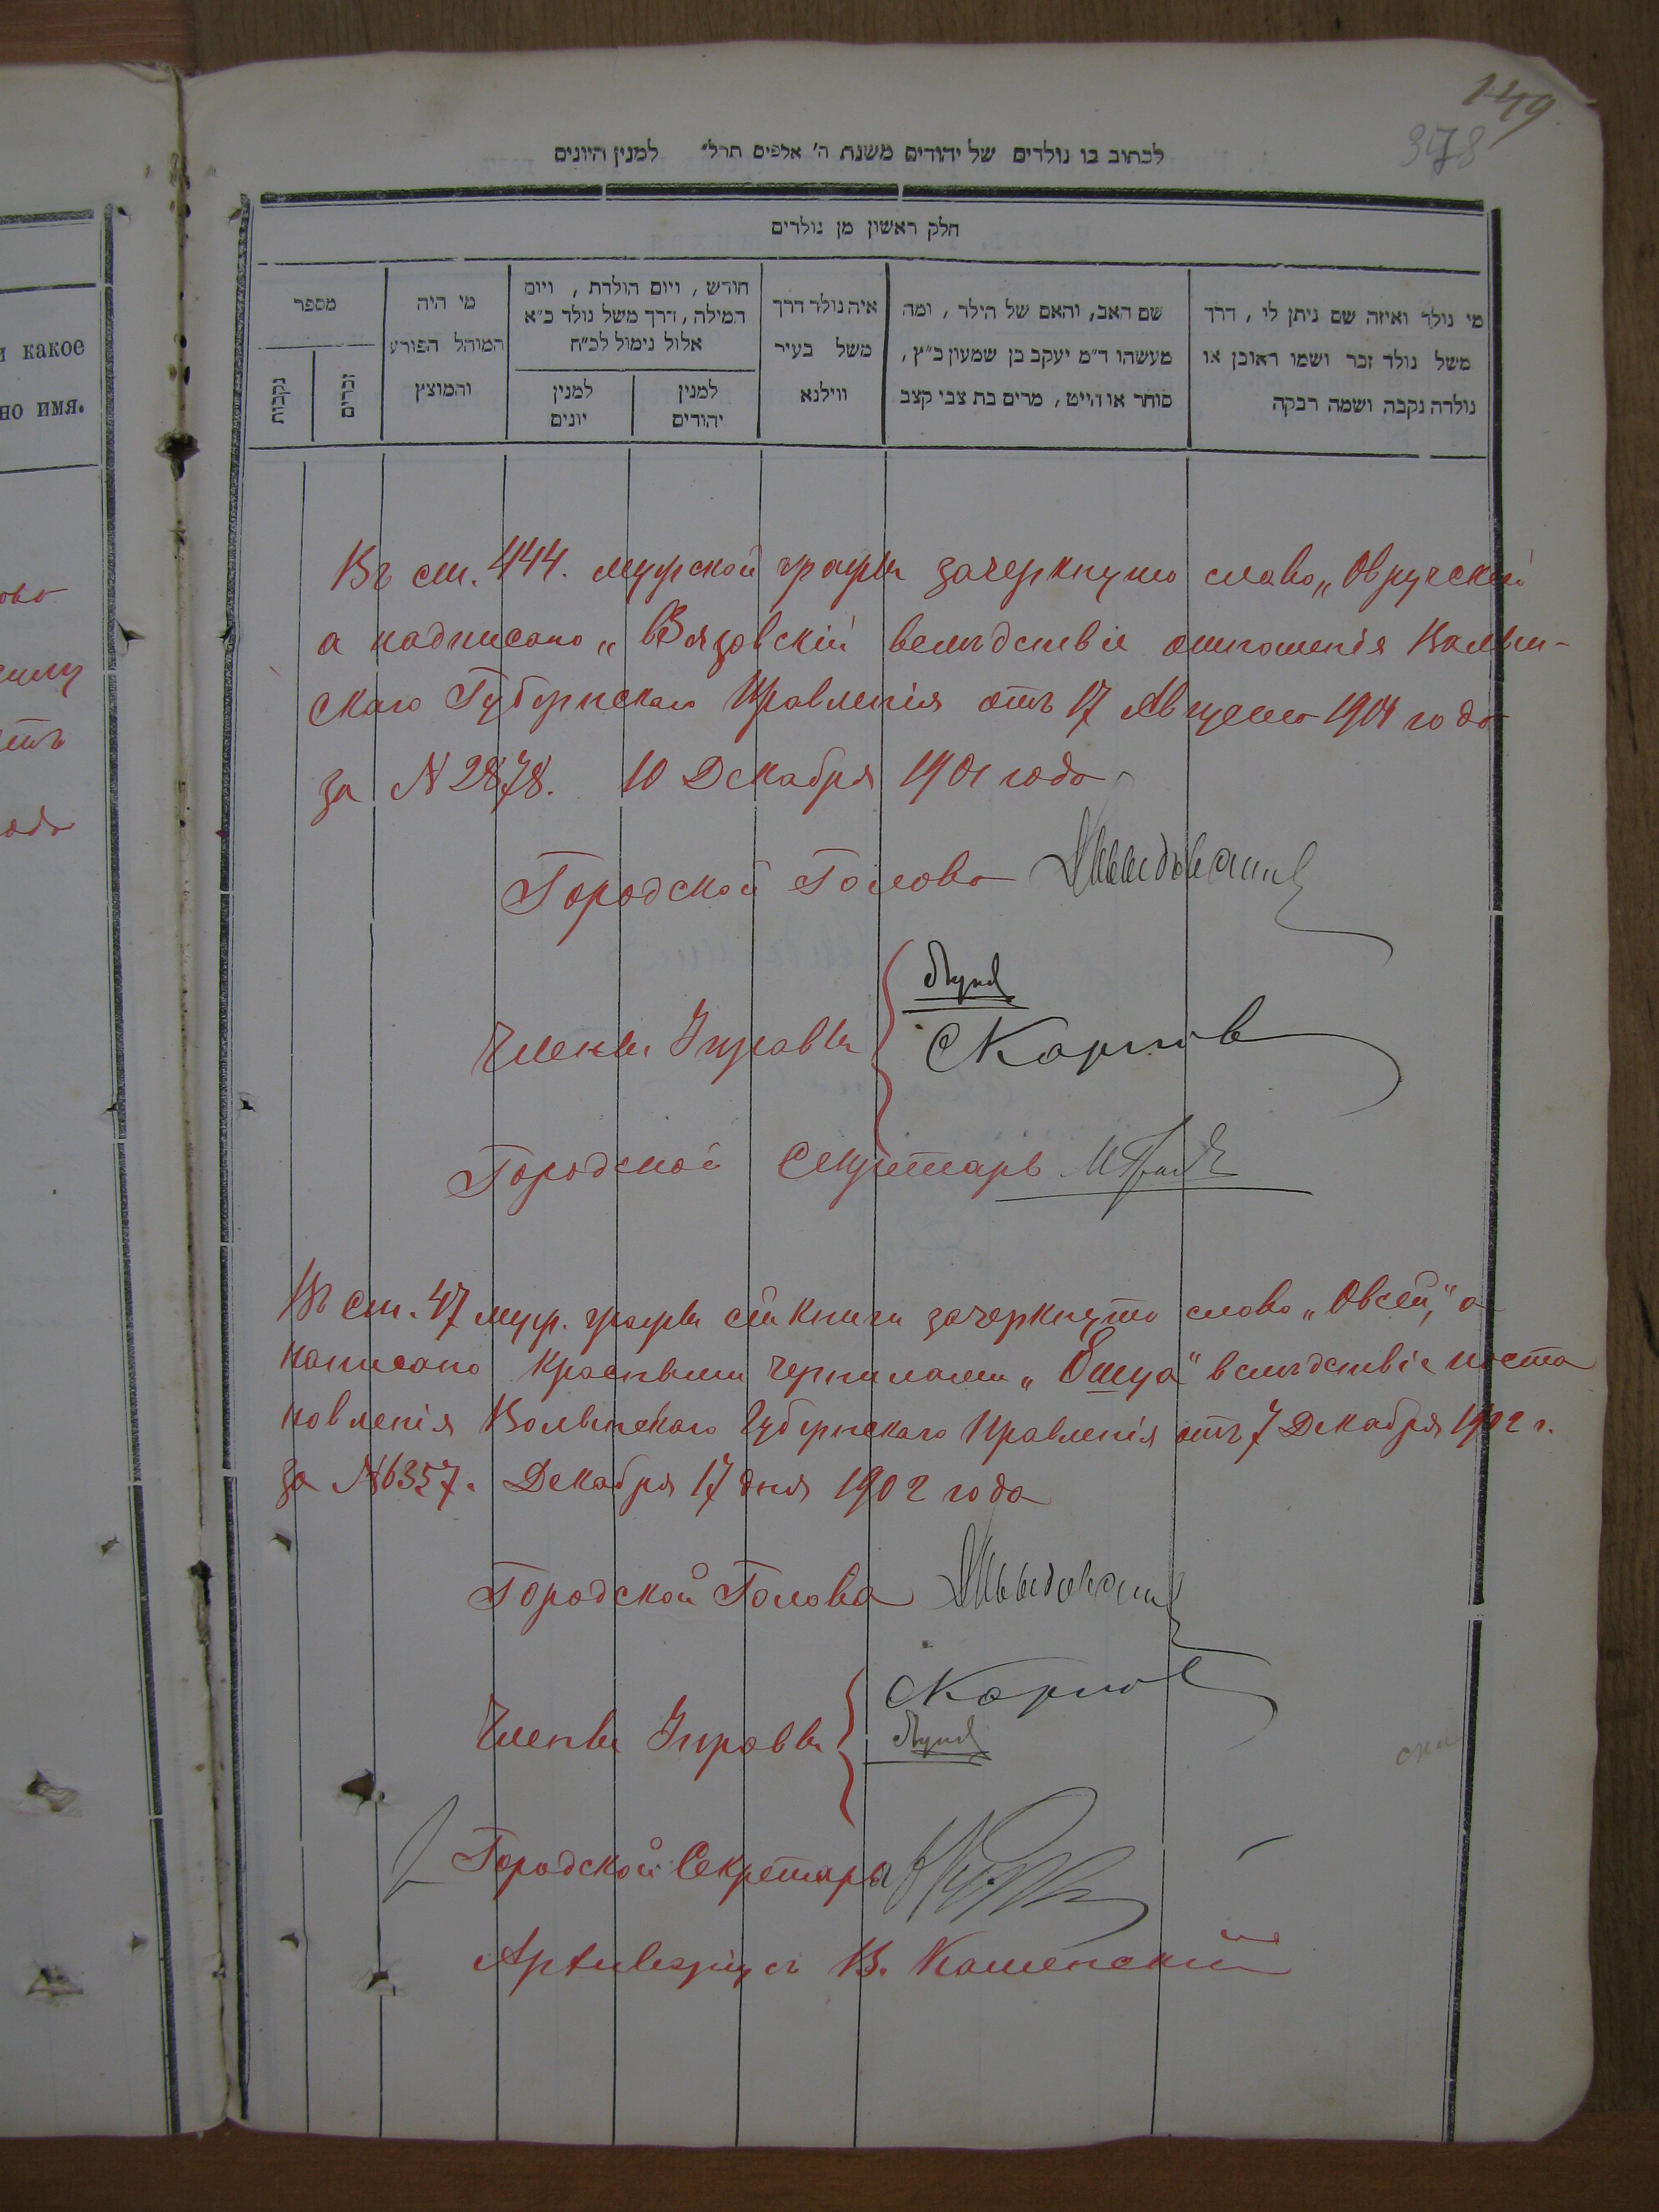 и какое
но имя.
149
378
לכתוב בו נולדים של יהודים משנת ה' אלפים תרל" למנין היונים
חלק ראשון מן נולדים
מי נולד ואיזה שם ניתן לו, דרך
משל נולד זכר ושמו ראובן או
נולדה נקבה ושמה רבקה
שם האב, והאם של הילד, ומה
מעשהו ד"מ יעקב בן שמעון כ"ץ,
סוחר או חייט, מרים בת צבי קצב
איה נולד דרך
משל בעיר
ווילנא
חודש, ויום הולדת, ויום
המילה, דרך משל נולד כ"א
אלול נימול לכ"ח
למנין
יהודים
למנין
יונים
מי היה
המוהל הפורע
והמוצץ
מספר
זכרים
נקבות
Въ ст. 444. мужской графы зачеркнуто слово „Овручскій
а надписано „Вязовскій вслѣдствіе отношенія Волын-
скаго Губернскаго Правленія отъ 17 Августа 1901 года
за N 2878. 10 Декабря 1901 года
Городской Голова
Члены Управы
СКарпов
Городской Секретарь
Въ ст. 47 муж. графы сей книги зачеркнуто слово „Овсей," а
написано красными чернилами „Ошуа" вслѣдствіе поста
новленія Волынскаго Губернскаго Правленія отъ 7 Декабря 1902 г.
за N 6357. Декабря 17 дня 1902 года
Городской Голова
Члены Управы
СКарпов
Городской Секретарь
Архиваріусъ В. Каменскій